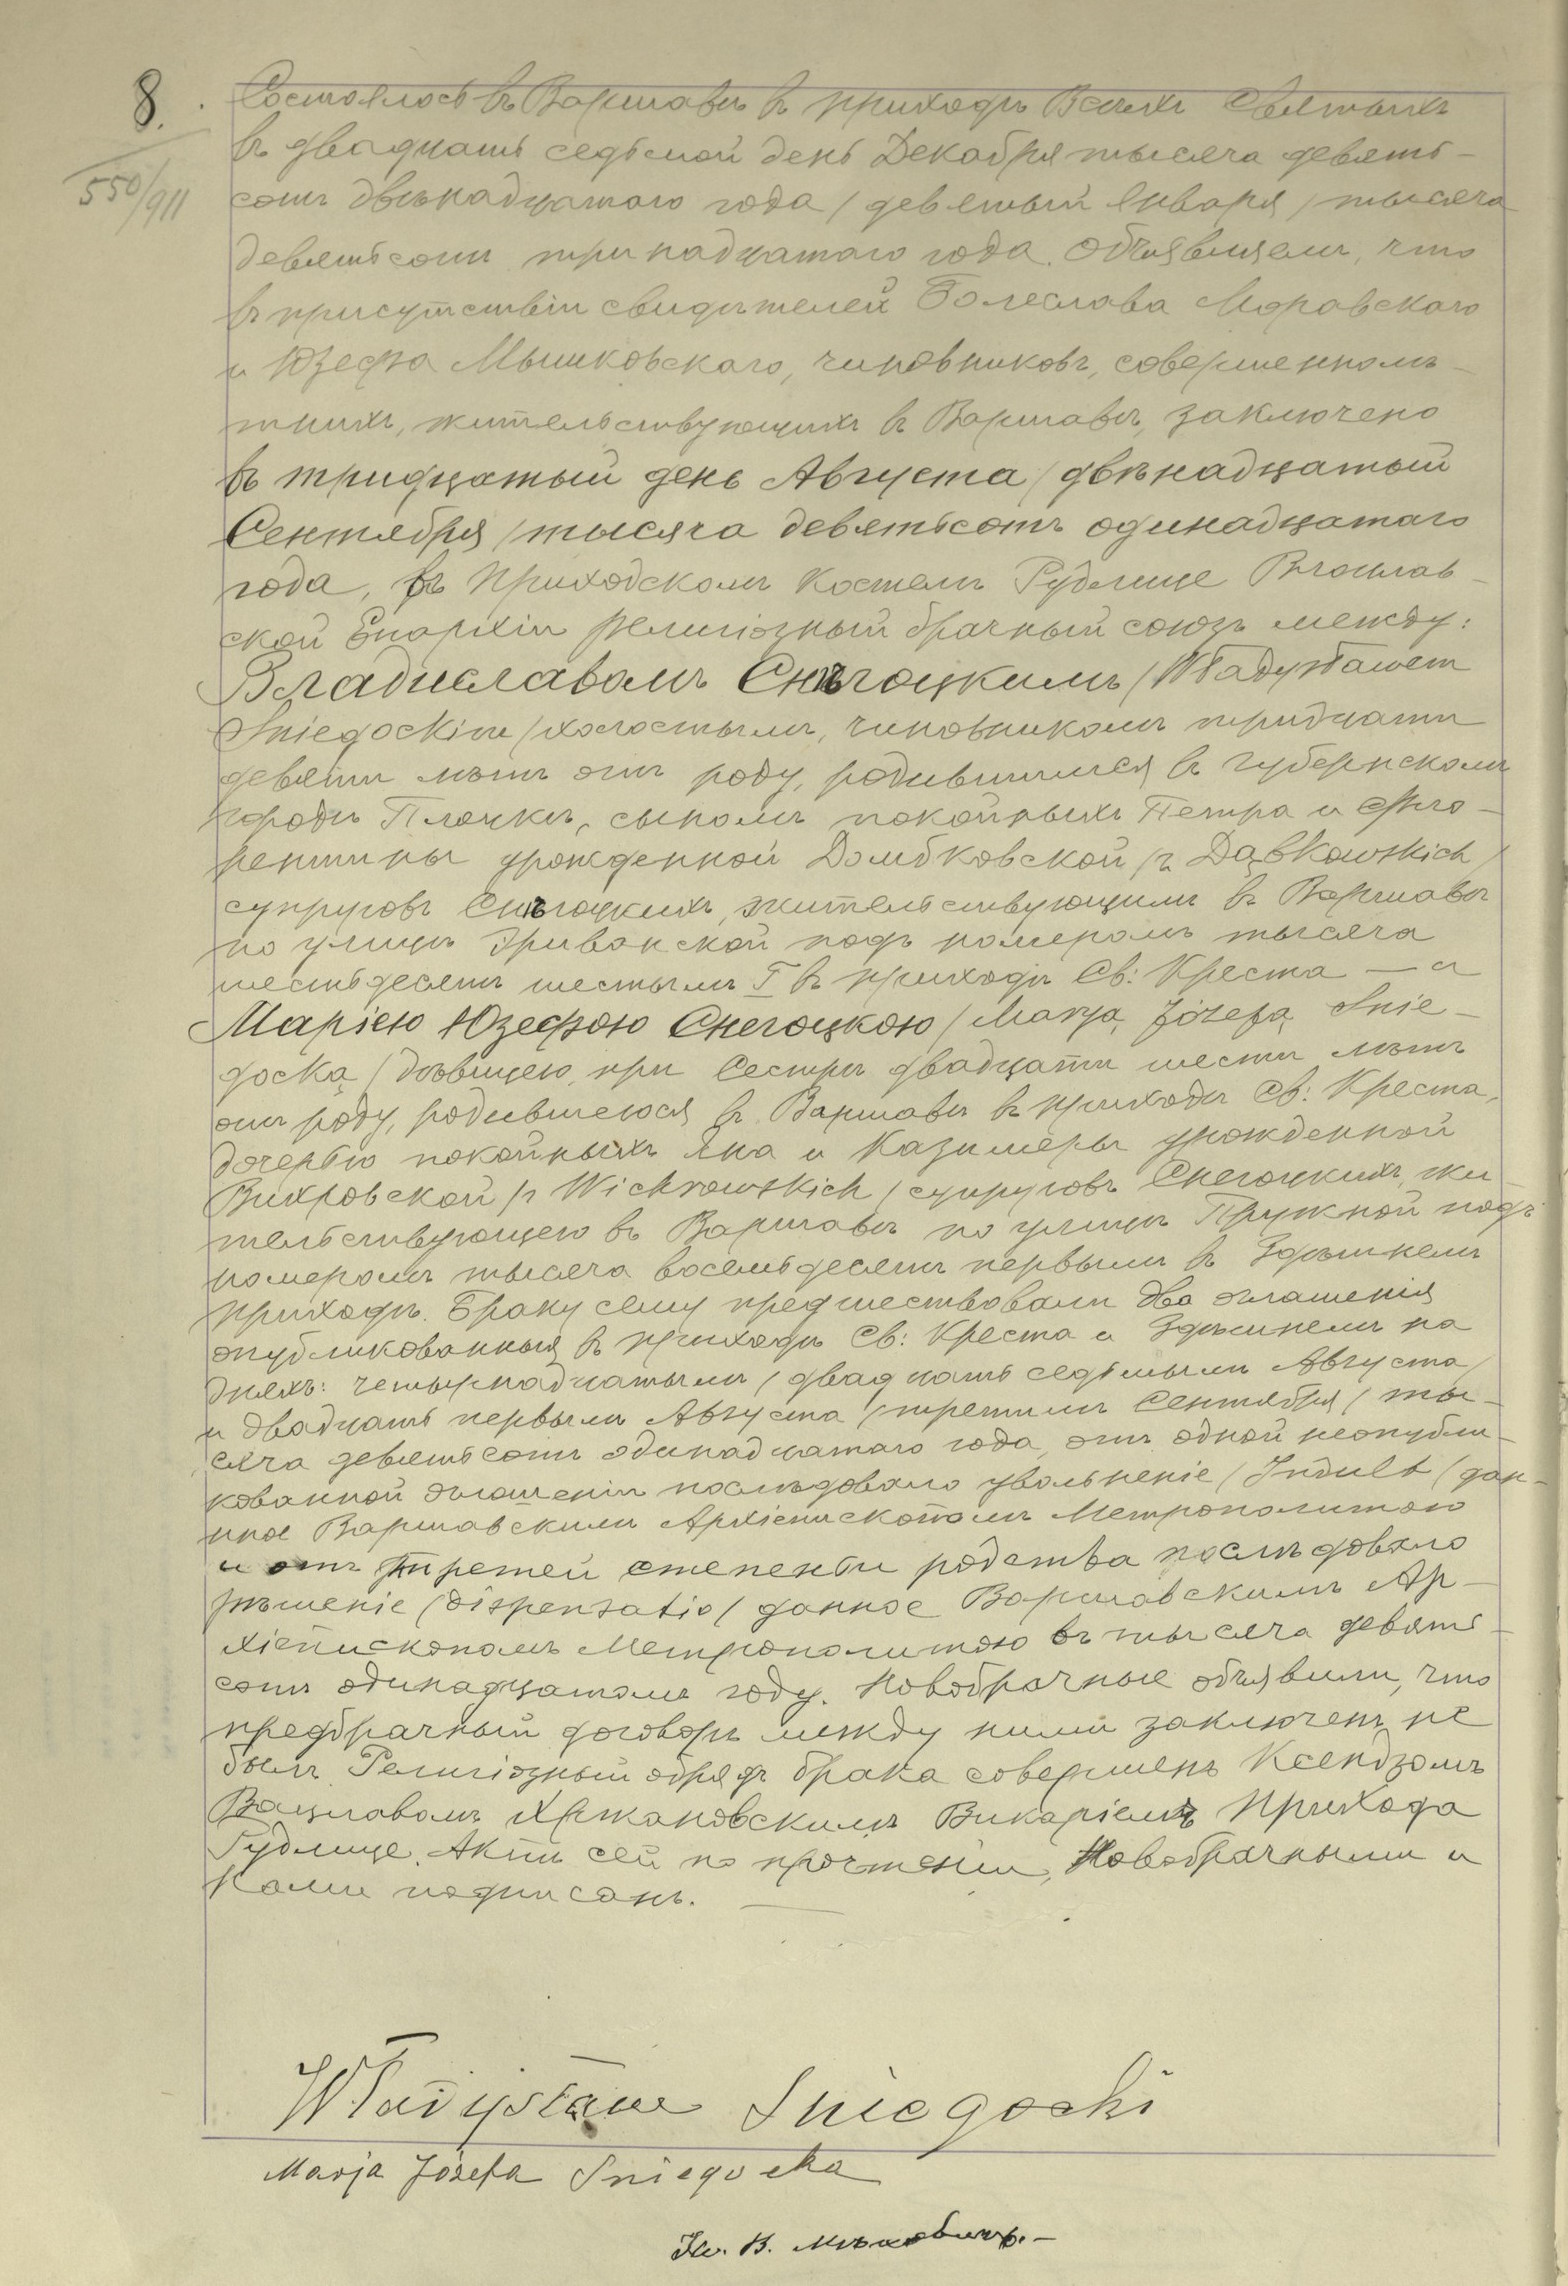 8.
550/911
Состоялось въ Варшавѣ въ приходѣ Всѣхъ Святыхъ
въ двадцать седьмой день Декабря тысяча девять-
сотъ двѣнадцатаго года / девятый Января / тысяча
девятьсотъ тринадцатаго года. Объявляемъ, что
въ присутствіи свидѣтелей Болеслава Моравскаго
и Юзефа Мышковскаго, чиновниковъ, совершеннолѣ-
тнихъ, жительствующихъ въ Варшавѣ, заключено
въ тридцатый день Августа / двѣнадцатый
Сентября / тысяча девятьсотъ одинадцатаго
года, въ Приходскомъ Костелѣ Рудлице Влоцлав-
ской Епархіи религіозный брачный союзъ между:
Владиславомъ Снѣгоцкимъ / Władysławem
Sniegockim / холостымъ, чиновникомъ тридцати
девяти лѣтъ отъ роду, родившимся въ Губернскомъ
городѣ Плоцкѣ, сыномъ покойныхъ Петра и Фло-
рентины урожденной Домбковской / z Dąbkowskich /
супруговъ Снѣгоцкихъ, жительствующимъ въ Варшавѣ
по улицѣ Эриванской подъ номеромъ тысяча
шестьдесятъ шестымъ I въ приходѣ Св: Креста — а
Маріею Юзефою Снегоцкою / Marją Józefą Snie-
gocką / дѣвицею, при Сестрѣ двадцати шести лѣтъ
отъ роду, родившеюся въ Варшавѣ въ приходѣ Св: Креста,
дочерью покойныхъ Яна и Казимеры урожденной
Вихровской / z Wichrowskich / супруговъ Снегоцкихъ, жи-
тельствующею въ Варшавѣ по улицѣ Пружной подъ
номеромъ тысяча восемьдесятъ первымъ въ здѣшнемъ
приходѣ. Браку сему предшествовали два оглашенія
опубликованныя въ приходѣ Св: Креста и здѣшнемъ на
дняхъ: четырнадцатымъ / двадцать седьмымъ Августа /
и двадцать первымъ Августа / третимъ Сентября / ты-
сяча девятьсотъ одинадцатаго года, отъ одной неопубли-
кованной оглашеніи послѣдовало увольненіе / Indult / дан-
ное Варшавскимъ Архіепископомъ Метрополитою
и отъ третей степени родства послѣдовало
рѣшеніе / dispensatio / данное Варшавскимъ Ар-
хіепископомъ Метрополитою въ тысяча девять-
сотъ одинадцатомъ году. Новобрачные объявили, что
предбрачный договоръ между ними заключенъ не
былъ. Религіозный обрядъ брака совершенъ Ксендзомъ
Вацлавомъ Хржановскимъ Викаріемъ Прихода
Рудлице. Актъ сей по прочтеніи, Новобрачными и
Нами подписанъ.
Władysław Sniegocki
Marja Józefa Sniegocka